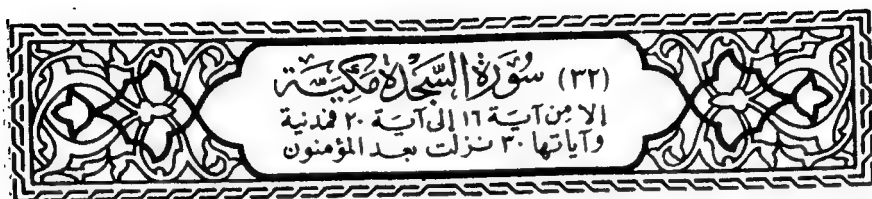 (٣٢) سُورَةُ السَّجْدَةِ مَكِّيَّة
إلا مِن آيَة ١٦ إلى آيَة ٢٠ فمدنية
وآياتها ٣٠ نزلت بعد المؤمنون